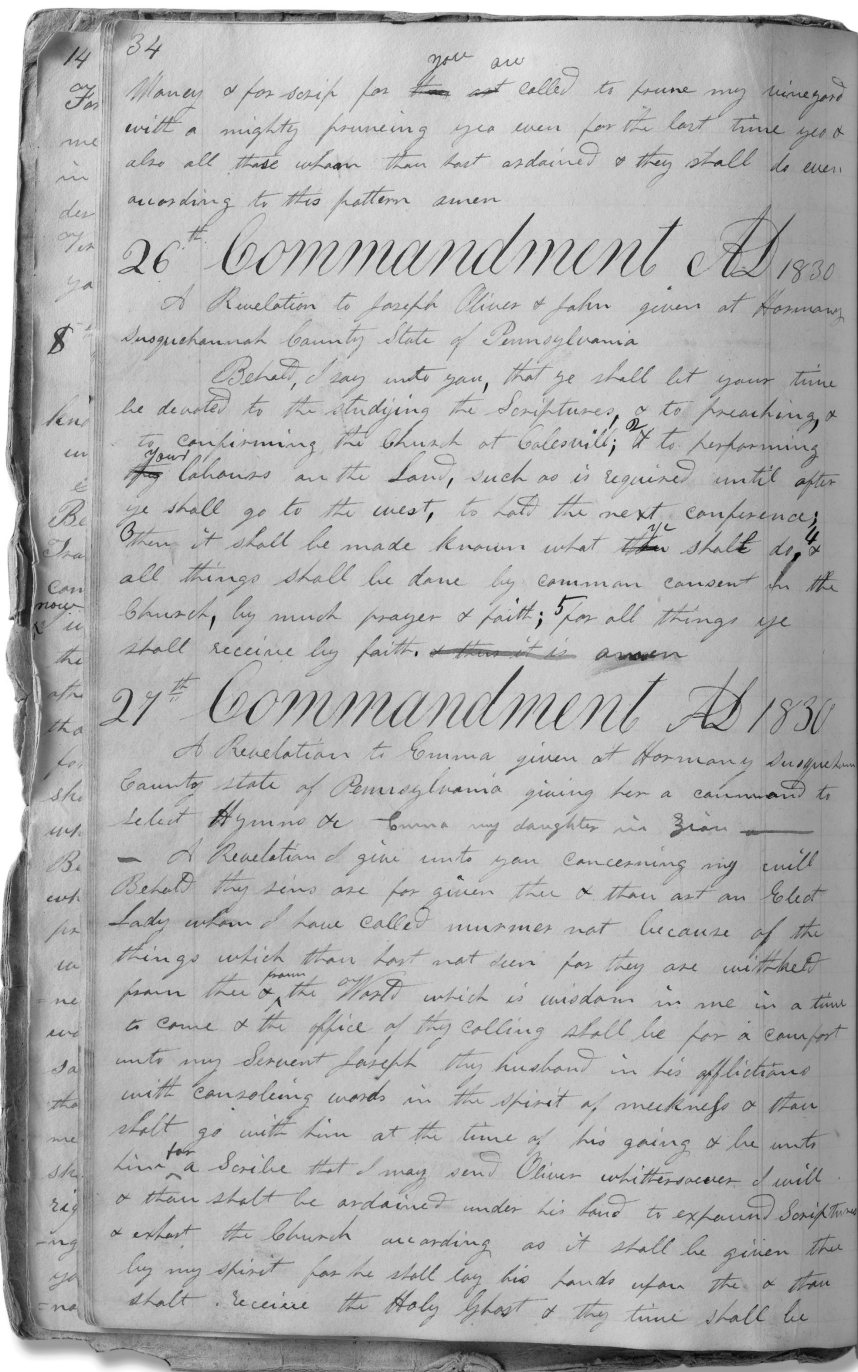 34
you are
Money & for scrip for thou art called to prune my vineyard
with a mighty pruneing yea even for the last time yea &
also all those whom thou hast ordained & they shall do even
according to this pattern amen
26th Commandment AD 1830
A Revelation to Joseph Oliver & John given at Harmony
Susquehannah County State of Pennsylvania
Behold, I say unto you, that ye shall let your time
be devoted to the studying the Scriptures, & to preaching, &
to confirming the Church at Colesvill; 2 & to performing
your
thy labours on the Land, such as is required until after
ye shall go to the west, to hold the next conference;
3 then it shall be made known what thou ye shalt do, 4 &
all things shall be done by common consent in the
Church, by much prayer & faith; 5 for all things ye
shall receive by faith. & thus it is amen
27th Commandment AD 1830
A Revelation to Emma given at Harmony Susquehan
County state of Pennsylvania giving her a command to
select Hymns &c Emma my daughter in Zion —
— A Revelation I give unto you concerning my will
Behold thy sins are for given thee & thou art an Elect
Lady whom I have called murmer not because of the
things which thou hast not seen for they are withheld
from thee & from the World which is wisdom in me in a time
to come & the office of thy calling shall be for a comfort
unto my Servent Joseph thy husband in his afflictions
with consoleing words in the spirit of meekness & thou
shalt go with him at the time of his going & be unto
him for a Scribe that I may send Oliver whithersoever I will
& thou shalt be ordained under his hand to expound Scriptures
& exhort the Church according as it shall be given thee
by my spirit for he shall lay his hands upon the & thou
shalt receive the Holy Ghost & thy time shall be
14
For
me
in
8
kno
Be
con
now
the
oth
tho
for
sho
wh
Be
wh
tho
me
sh
rig
=ng